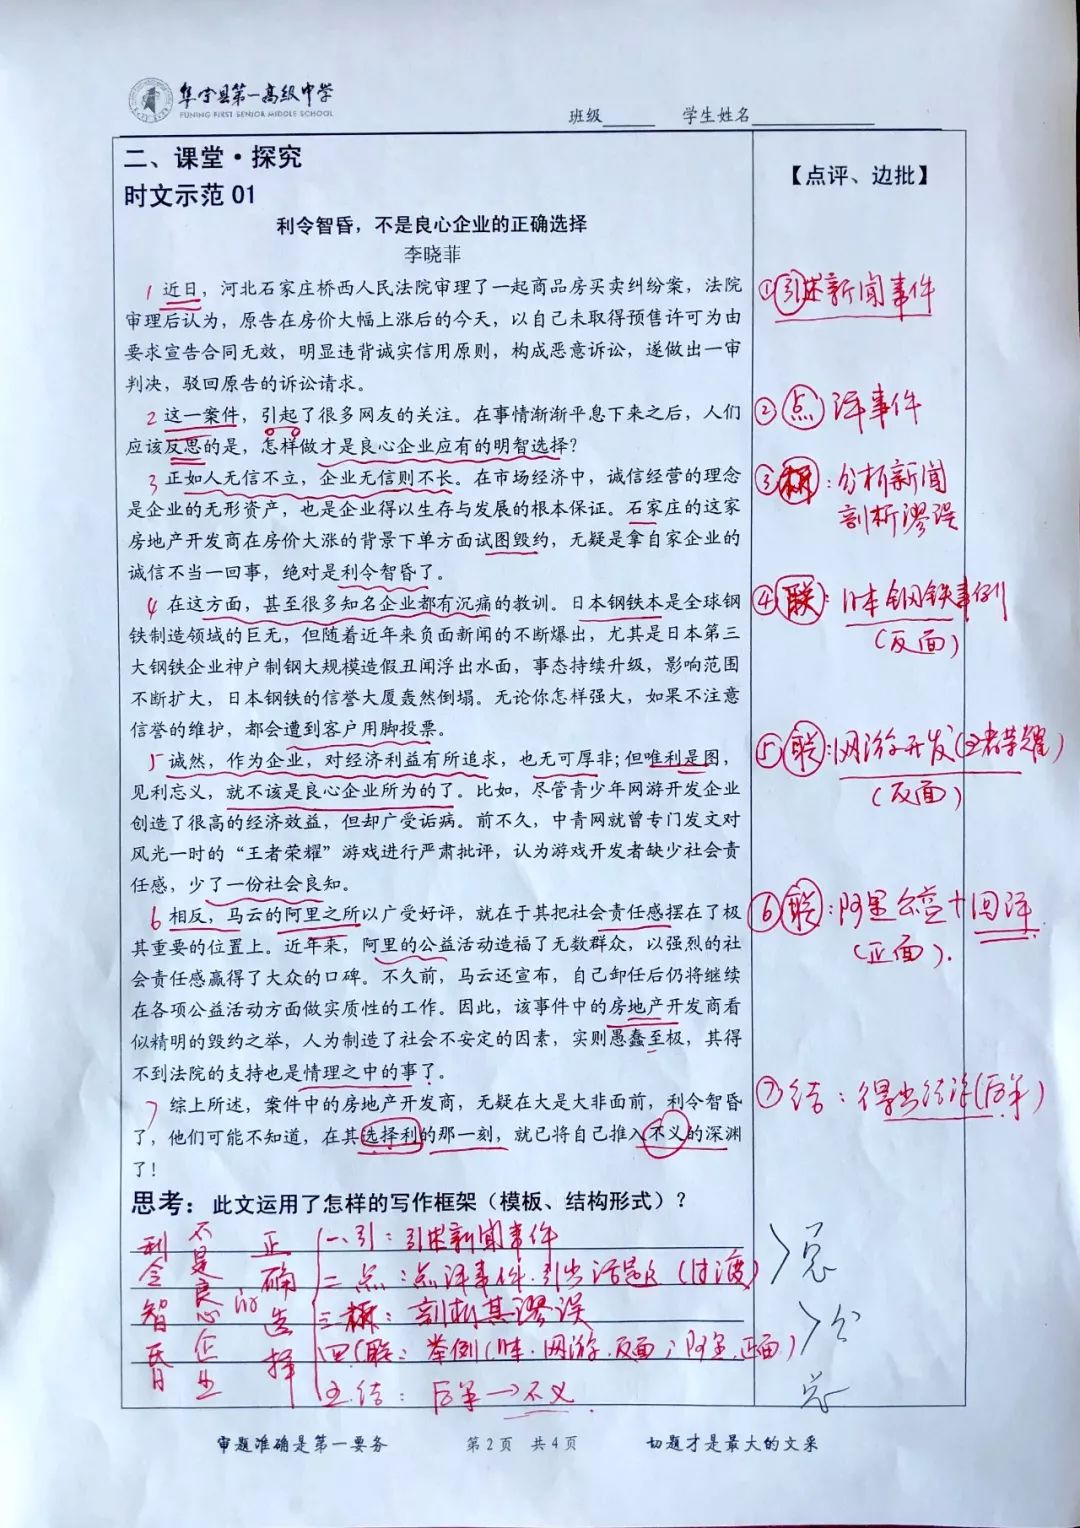 阜宁县第一高级中学
FUNING FIRST SENIOR MIDDLE SCHOOL
班级 学生姓名
二、课堂·探究
【点评、边批】
时文示范 01
利令智昏，不是良心企业的正确选择
李晓菲
1 近日，河北石家庄桥西人民法院审理了一起商品房买卖纠纷案，法院
①引述新闻事件
审理后认为，原告在房价大幅上涨后的今天，以自己未取得预售许可为由
要求宣告合同无效，明显违背诚实信用原则，构成恶意诉讼，遂做出一审
判决，驳回原告的诉讼请求。
2 这一案件，引起了很多网友的关注。在事情渐渐平息下来之后，人们
②点评事件
应该反思的是，怎样做才是良心企业应有的明智选择？
3 正如人无信不立，企业无信则不长。在市场经济中，诚信经营的理念
③析：分析新闻
是企业的无形资产，也是企业得以生存与发展的根本保证。石家庄的这家
剖析谬误
房地产开发商在房价大涨的背景下单方面试图毁约，无疑是拿自家企业的
诚信不当一回事，绝对是利令智昏了。
4 在这方面，甚至很多知名企业都有沉痛的教训。日本钢铁本是全球钢
④联：日本钢铁事例
铁制造领域的巨无，但随着近年来负面新闻的不断爆出，尤其是日本第三
（反面）
大钢铁企业神户制钢大规模造假丑闻浮出水面，事态持续升级，影响范围
不断扩大，日本钢铁的信誉大厦轰然倒塌。无论你怎样强大，如果不注意
信誉的维护，都会遭到客户用脚投票。
5 诚然，作为企业，对经济利益有所追求，也无可厚非；但唯利是图，
⑤联：网游开发（王者荣耀）
见利忘义，就不该是良心企业所为的了。比如，尽管青少年网游开发企业
（反面）
创造了很高的经济效益，但却广受诟病。前不久，中青网就曾专门发文对
风光一时的“王者荣耀”游戏进行严肃批评，认为游戏开发者缺少社会责
任感，少了一份社会良知。
6 相反，马云的阿里之所以广受好评，就在于其把社会责任感摆在了极
⑥联：阿里公益＋回评
其重要的位置上。近年来，阿里的公益活动造福了无数群众，以强烈的社
（正面）.
会责任感赢得了大众的口碑。不久前，马云还宣布，自己卸任后仍将继续
在各项公益活动方面做实质性的工作。因此，该事件中的房地产开发商看
似精明的毁约之举，人为制造了社会不安定的因素，实则愚蠢至极，其得
不到法院的支持也是情理之中的事了。
7 综上所述，案件中的房地产开发商，无疑在大是大非面前，利令智昏
⑦结：得出结论（后果）
了，他们可能不知道，在其选择利的那一刻，就已将自己推入不义的深渊
了！
思考：此文运用了怎样的写作框架（模板、结构形式）？
利令智昏
不是良心企业
的
正确选择
一、引：引述新闻事件
二 点：点评事件．引出话题（过渡）
总
三 析：剖析其谬误
四 联：举例（日本．网游．反面；阿里．正面）
分
五.结：后果→不义.
总
审题准确是第一要务 第2页 共4页 切题才是最大的文采